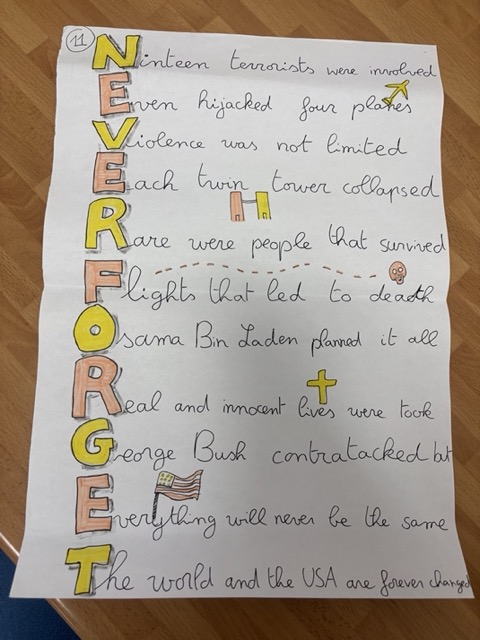 11
Nineteen terrorists were involved
Even hijacked four planes
Violence was not limited
Each twin tower collapsed
Rare were people that survived
Flights that led to death
Osama Bin Laden planned it all
Real and innocent lives were took
George Bush contratacked but
Everything will never be the same
The world and the USA are forever changed